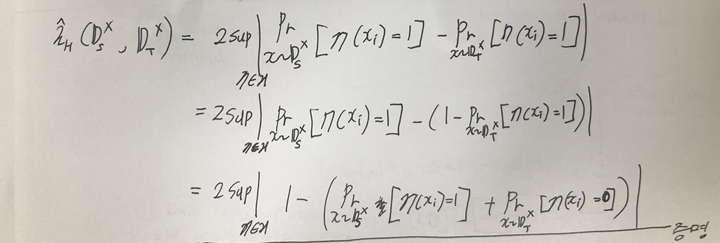 \hat{d}_H (D_S^X, D_T^X) = 2 sup_{η∈H} | Pr_{x~D_S^X} [η(x_i)=1] - Pr_{x~D_T^X} [η(x_i)=1] |
= 2 sup_{η∈H} | Pr_{x~D_S^X} [η(x_i)=1] - (1 - Pr_{x~D_T^X} [η(x_i)=1]) |
= 2 sup_{η∈H} | 1 - ( Pr_{x~D_S^X} [η(x_i)=1] + Pr_{x~D_T^X} [η(x_i)=0] ) |
증명